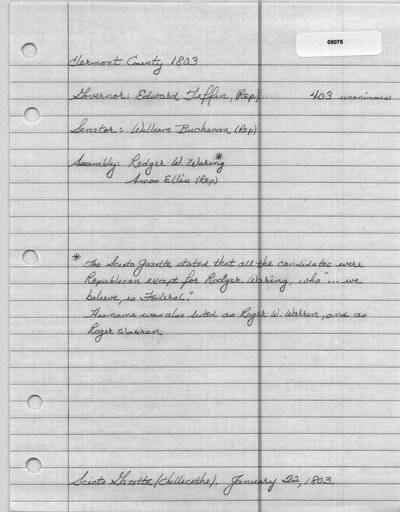 05075
Clermont County 1803
Governor: Edward Tiffin, (Rep) 403 unanimous
Senator: William Buchanan (Rep)
Assembly: Rodger W. Waring*
Amos Ellis (Rep)
* The Scioto Gazette stated that all the candidates were
Republican except for Rodger Waring, who "... we
believe, is Federal."
His name was also listed as Roger W. Warren, and as
Roger Warren
Scioto Gazette (Chillicothe). January 22, 1803.